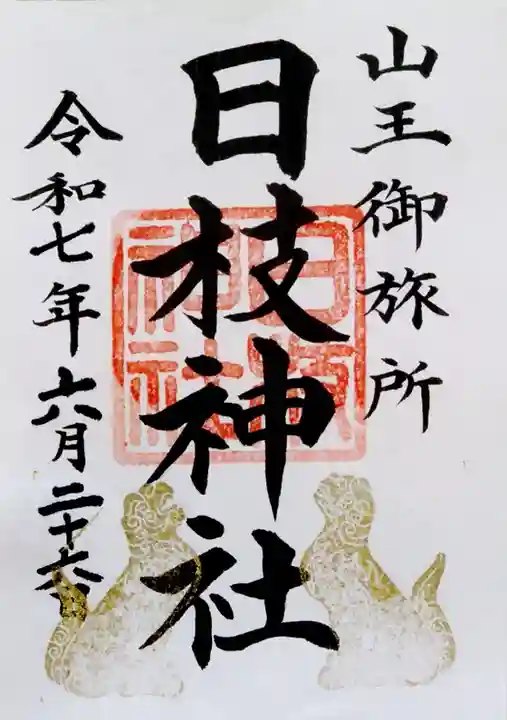 山王御旅所
日枝神社
令和七年六月二十六
日枝神社